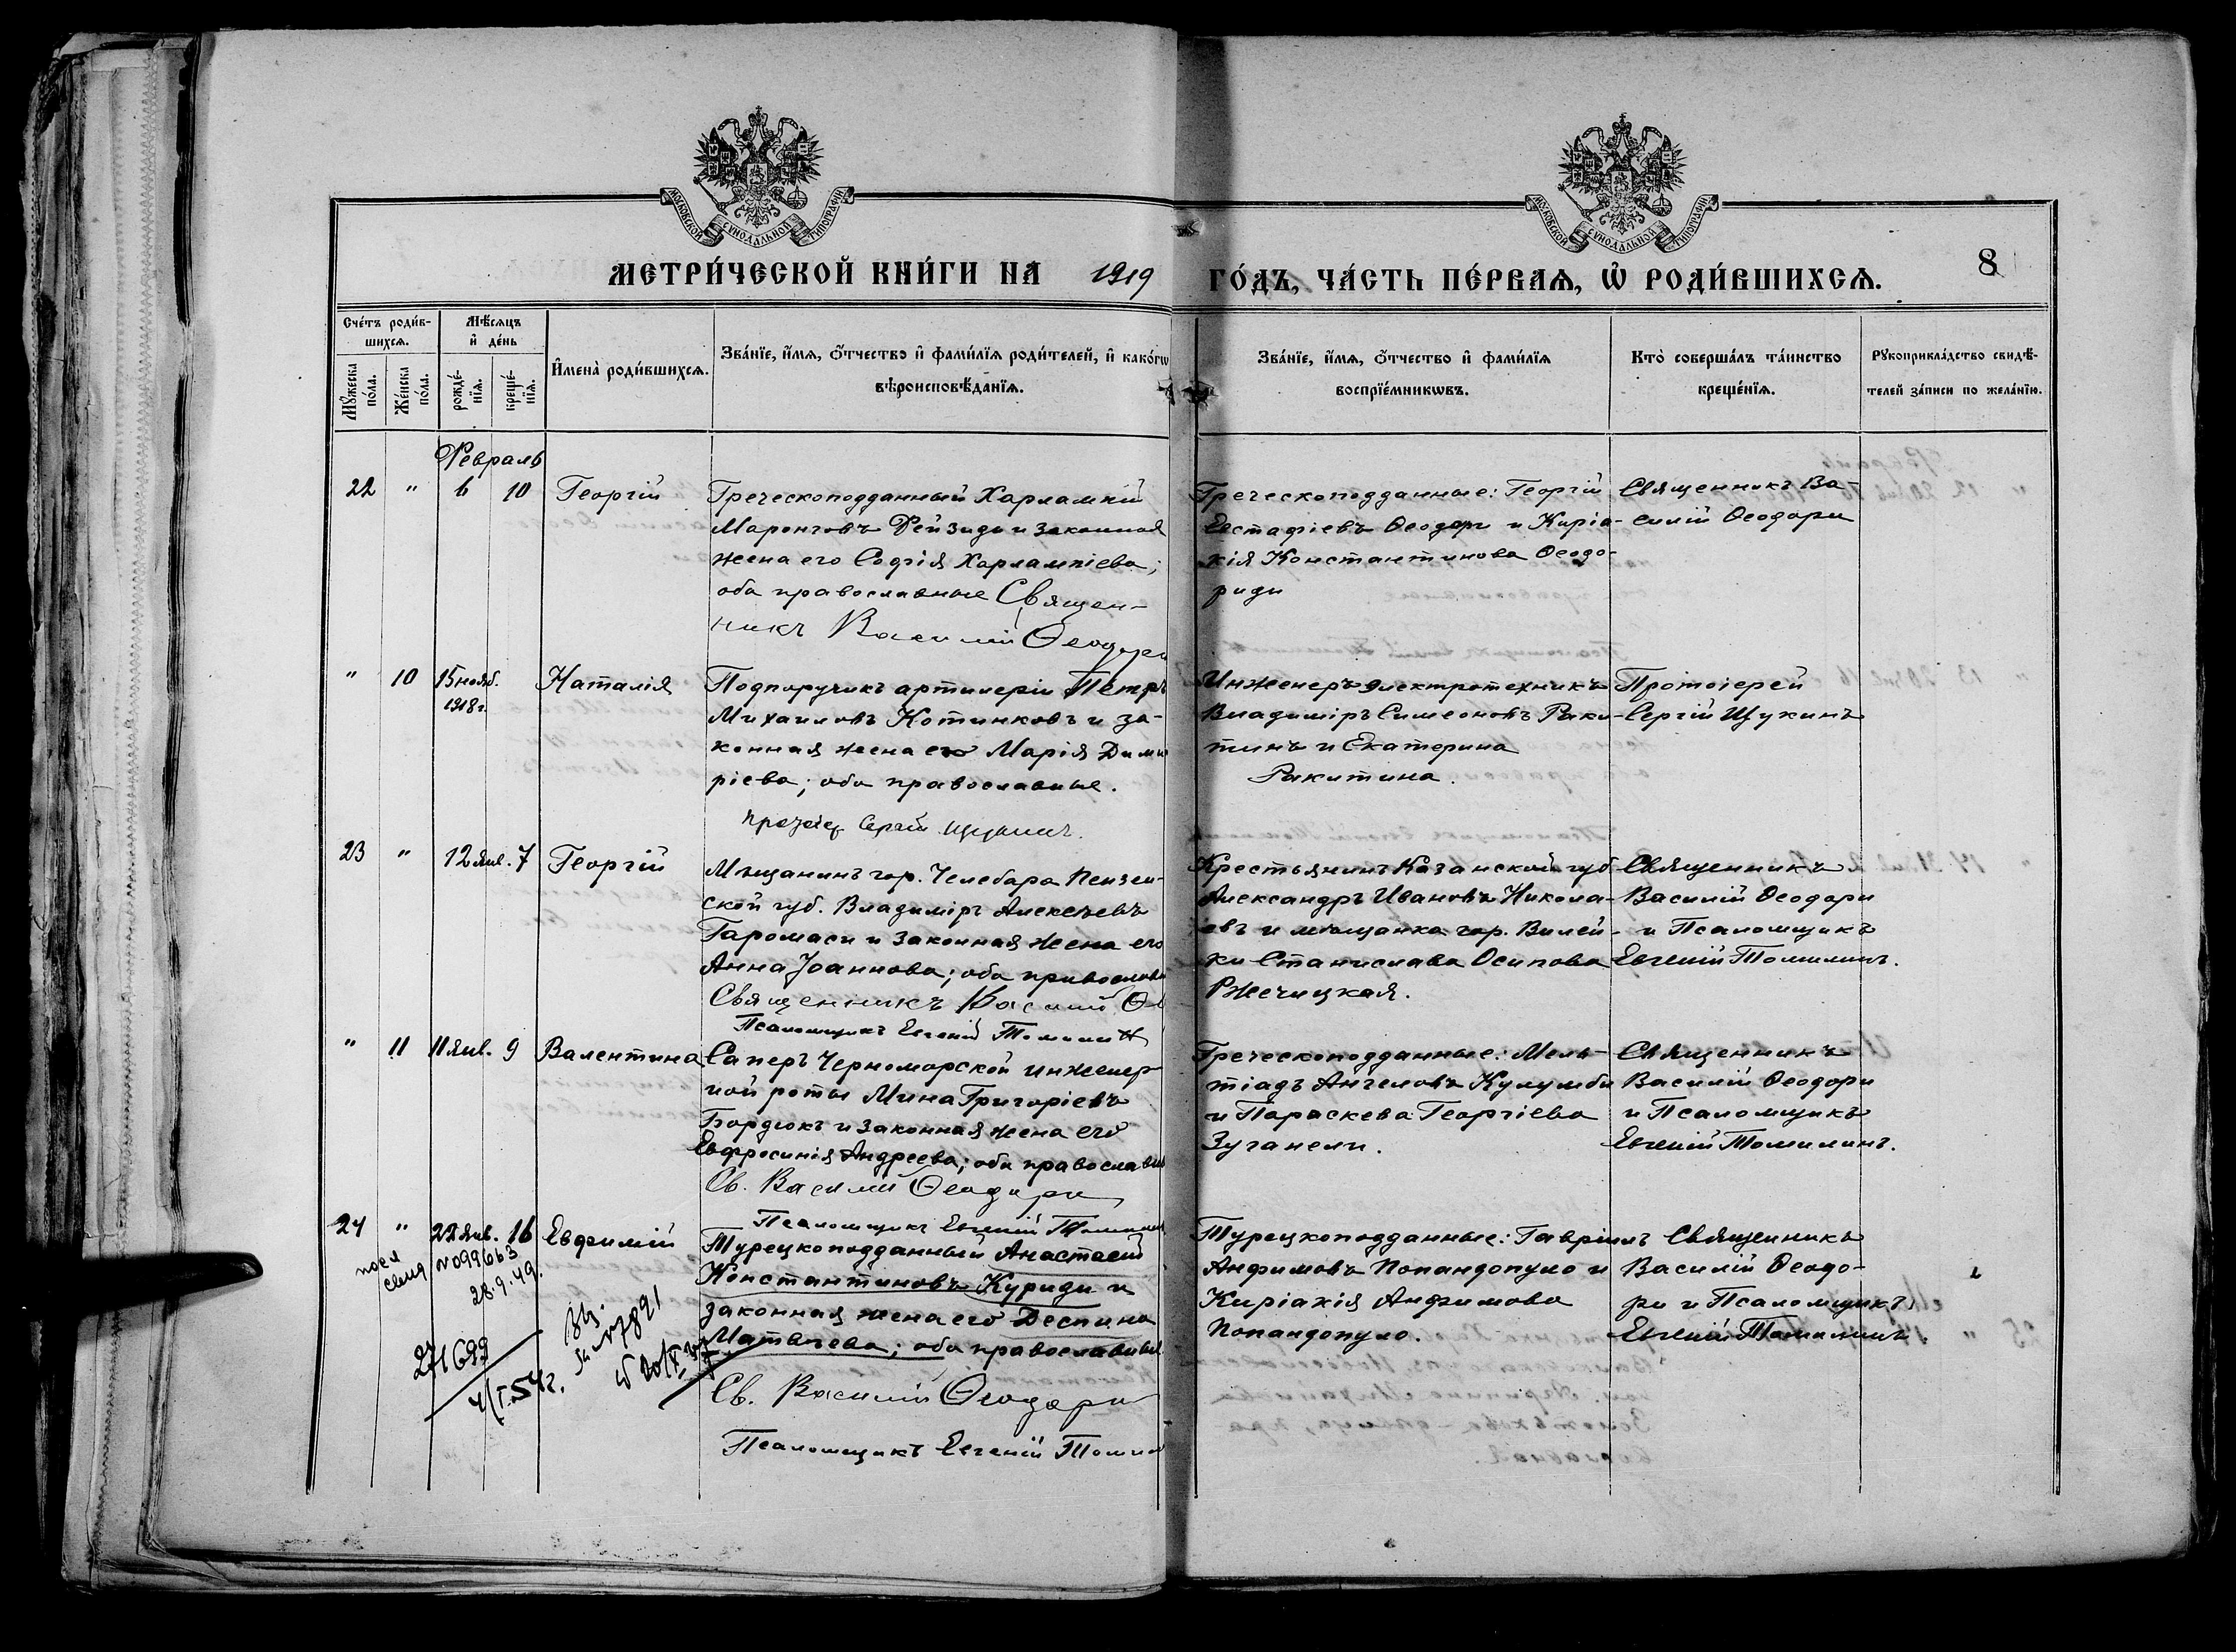 МОСКОВСКОЙ СѴНОДАЛЬНОЙ ТИПОГРАФІИ
МОСКОВСКОЙ СѴНОДАЛЬНОЙ ТИПОГРАФІИ
МЕТРИ́ЧЕСКОЙ КНИ́ГИ НА 1919 ГО́ДЪ, ЧА́СТЬ ПЕ́РВАѦ, Ѡ҆ РОДИ́ВШИХСѦ.
8
Сче́тъ роди́в-
шихсѧ.
Мꙋ́жеска по́ла.
Же́нска по́ла.
Мѣ́сѧцъ
и҆ де́нь
рожде́-
нїѧ.
креще́-
нїѧ.
И҆мена̀ роди́вшихсѧ.
Зва́нїе, и҆́мѧ, ѻ҆́тчество и҆ фами́лїѧ роди́телей, и҆ како́гѡ
вѣроисповѣ́данїѧ.
Зва́нїе, и҆́мѧ, ѻ҆́тчество и҆ фами́лїѧ
воспрїе́мникѡвъ.
Кто̀ соверша́лъ та́инство
креще́нїѧ.
Рꙋкоприкла́дство свидѣ́-
телей за́писи по жела́нїю.
Февраль
22 " 6 10 Георгій
Греческоподданный Харлампій
и законная
жена его Софія Харлампіева;
оба православные Священ-
никъ Василій Ѳеодори
Греческоподданные: Георгій
Евстафіевъ Ѳеодори и Киріа-
кія Константинова Ѳеодо-
риди
Священникъ Ва-
силій Ѳеодори
" 10 15 нояб.
1918 г.
Наталія
Подпоручикъ артилеріи Петръ
Михаиловъ Котинковъ и за-
конная жена его Марія Дими
ріева; оба православные.
Сергій Щукинъ.
Инженеръ электротехникъ
Владиміръ Симеоновъ Раки-
тинъ и Екатерина
Ракитина.
Протоіерей
Сергій Щукинъ
23 " 12 янв. 7 Георгій
Мѣщанинъ гор. Челебара Пензен-
ской губ. Владиміръ Алексѣевъ
Таромаси и законная жена его
Анна Іоаннова; оба православн
Священникъ Василій Ѳе
Псаломщикъ Евгеній Томилин
Крестьянинъ Казанской губ
Александръ Ивановъ Никола-
евъ и мѣщанка гор. Вилей-
ки Станислава Осипова
Ржечицкая.
Священникъ
Василій Ѳеодори
и Псаломщикъ
Евгеній Томилинъ.
" 11 11 янв. 9 Валентина
Саперъ Черноморской инженер
ной роты Мина Григоріевъ
Бордюкъ и законная жена его
Евфросинія Андреева; оба православн
Св. Василій Ѳеодори
Псаломщикъ Евгеній Томилин
Греческоподданные: Мель-
тіадъ Ангеловъ Кулумби
и Параскева Георгіева
Зуганели.
Священникъ
Василій Ѳеодори
и Псаломщикъ
Евгеній Томилинъ.
24 " 22 янв. 16 Евфимій
Турецкоподданный Анастасій
Константиновъ Куриди и
законная жена его Деспина
Матвѣева; оба православные
Св. Василій Ѳеодори
Псаломщикъ Евгеній Томилин
Турецкоподданные: Гавріилъ
Анфимовъ Попандопуло и
Киріакія Анфимова
Попандопуло.
Священникъ
Василій Ѳеодо-
ри и Псаломщикъ
Евгеній Томилинъ.
свид №099663
28.9.49.
271699
4/I.54г.
№7891